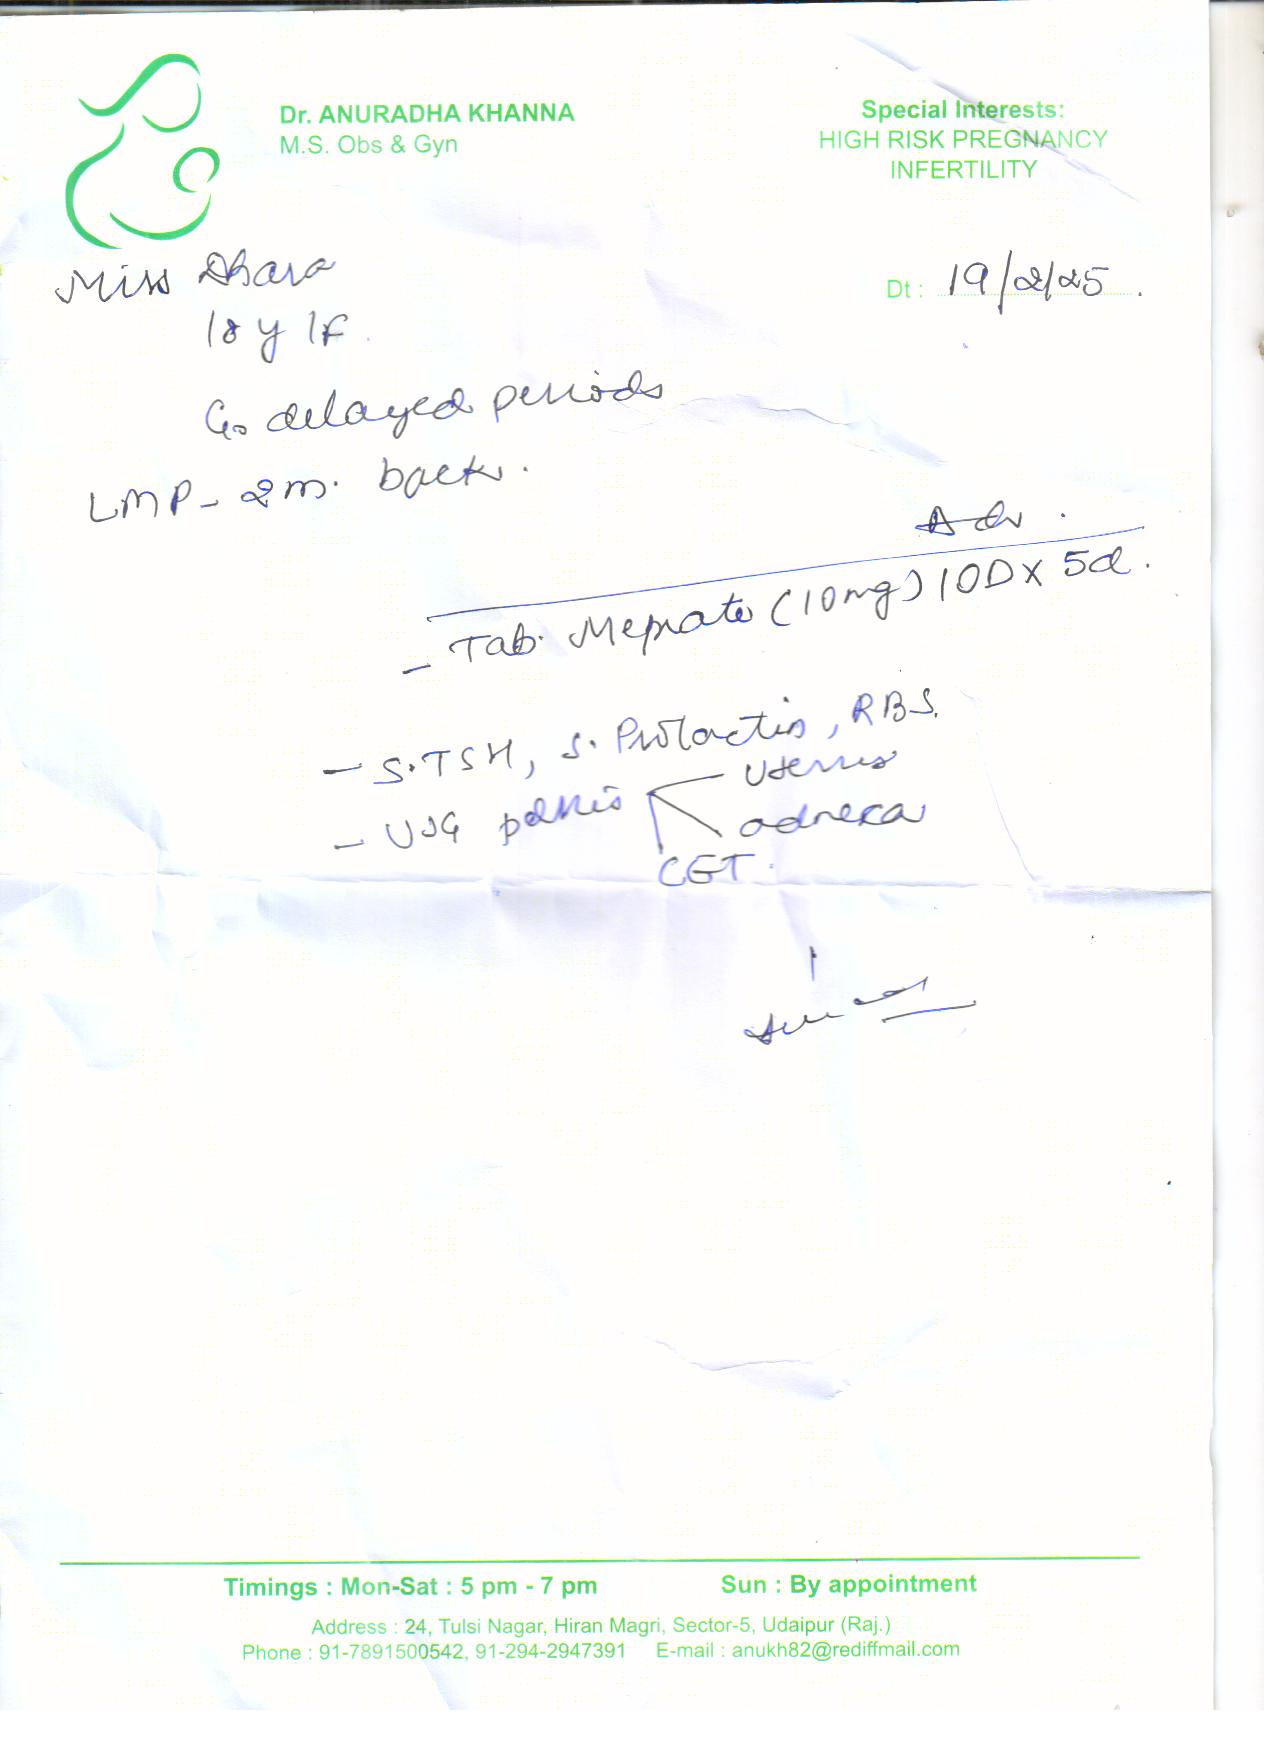 Dr. ANURADHA KHANNA
M.S. Obs & Gyn
Special Interests:
HIGH RISK PREGNANCY
INFERTILITY
Miss Dhara
Dt : 19/2/25.
18 y / F.
C/o delayed periods
LMP - 2 m. back.
Adv.
- Tab. Meprate (10mg) 1 OD X 5d.
- S.TSH, S. Prolactin, RBS.
- USG pelvis
Uterus
adnexa
CET.
Timings : Mon-Sat : 5 pm - 7 pm Sun : By appointment
Address : 24, Tulsi Nagar, Hiran Magri, Sector-5, Udaipur (Raj.)
Phone : 91-7891500542, 91-294-2947391 E-mail : anukh82@rediffmail.com